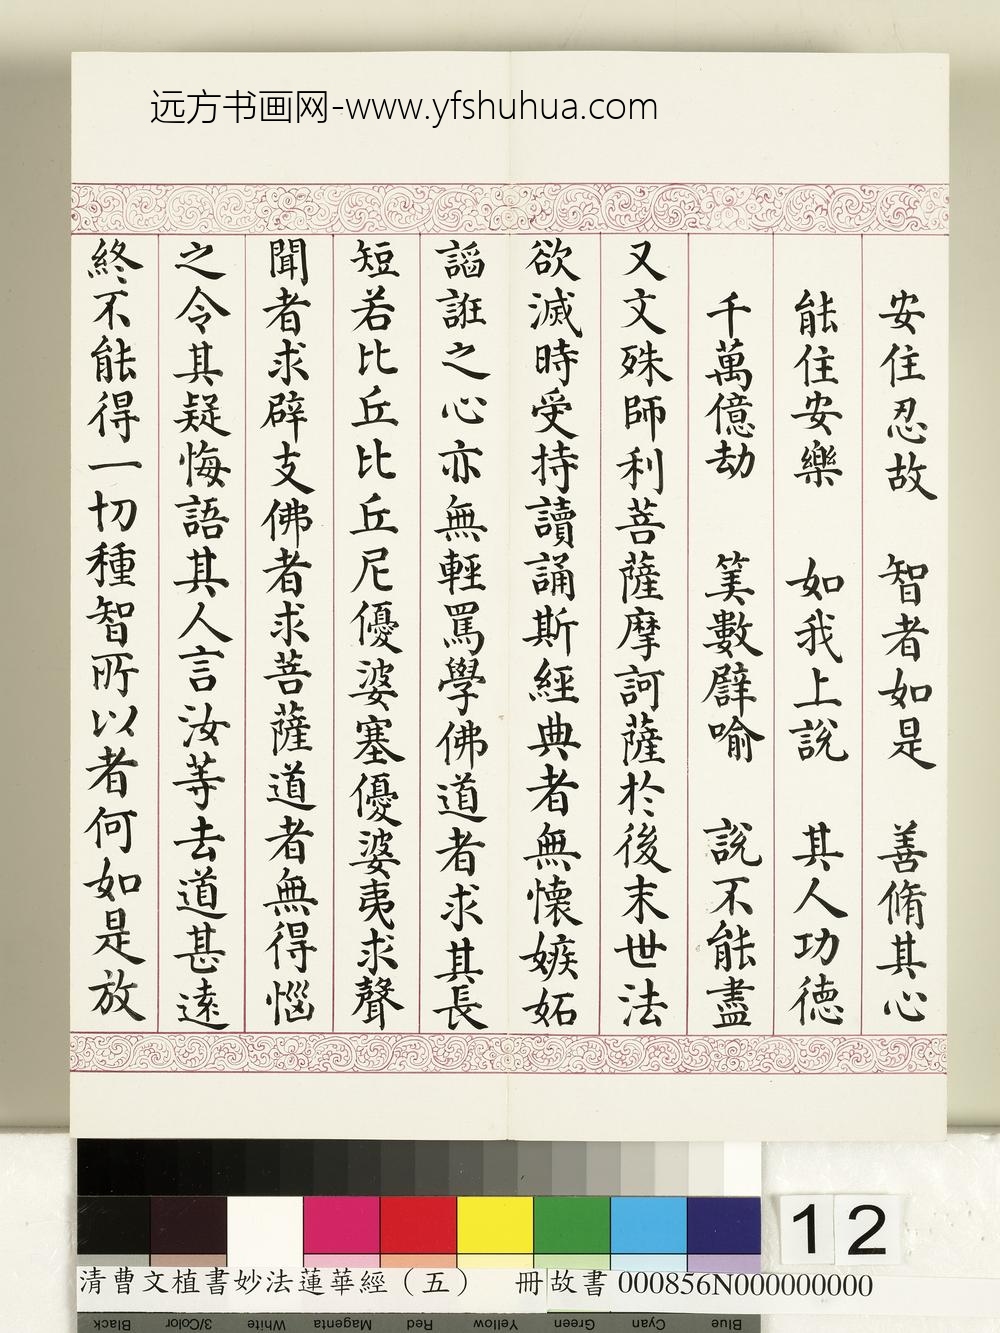 远方书画网-www.yfshuhua.com
安住忍故　智者如是　善脩其心
能住安樂　如我上說　其人功德
千萬億劫　筭數譬喻　說不能盡
又文殊師利菩薩摩訶薩於後末世法
欲滅時受持讀誦斯經典者無懷嫉妬
謟誑之心亦無輕罵學佛道者求其長
短若比丘比丘尼優婆塞優婆夷求聲
聞者求辟支佛者求菩薩道者無得惱
之令其疑悔語其人言汝等去道甚遠
終不能得一切種智所以者何如是放
12
清曹文植書妙法蓮華經（五）　冊 故書000856N000000000
Black 3/Color White Magenta Red Yellow Green Cyan Blue